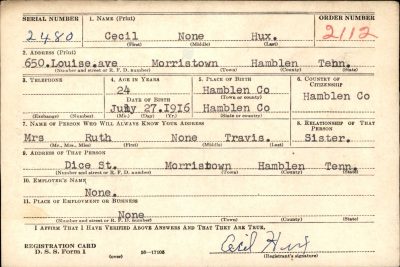 SERIAL NUMBER 1. NAME (Print) ORDER NUMBER
2480 Cecil None Hux. 2112
(First) (Middle) (Last)
2. ADDRESS (Print)
650.Louise.ave Morristown Hamblen Tehn.
(Number and street or R. F. D. number) (Town) (County) (State)
3. TELEPHONE 4. AGE IN YEARS 5. PLACE OF BIRTH 6. COUNTRY OF CITIZENSHIP
24 Hamblen Co
(Town or county)
DATE OF BIRTH Hamblen Co
July 27.1916 Hamblen Co
(Exchange) (Number) (Mo.) (Day) (Yr.) (State or country)
7. NAME OF PERSON WHO WILL ALWAYS KNOW YOUR ADDRESS 8. RELATIONSHIP OF THAT PERSON
Mrs Ruth None Travis. Sister.
(Mr., Mrs., Miss) (First) (Middle) (Last)
9. ADDRESS OF THAT PERSON
Dice St. Morristown Hamblen Tenn.
(Number and street or R. F. D. number) (Town) (County) (State)
10. EMPLOYER'S NAME
None.
11. PLACE OF EMPLOYMENT OR BUSINESS
None
(Number and street or R. F. D. number) (Town) (County) (State)
I AFFIRM THAT I HAVE VERIFIED ABOVE ANSWERS AND THAT THEY ARE TRUE.
REGISTRATION CARD
D. S. S. Form 1 (over) 16—17105 Cecil Hux
(Registrant's signature)